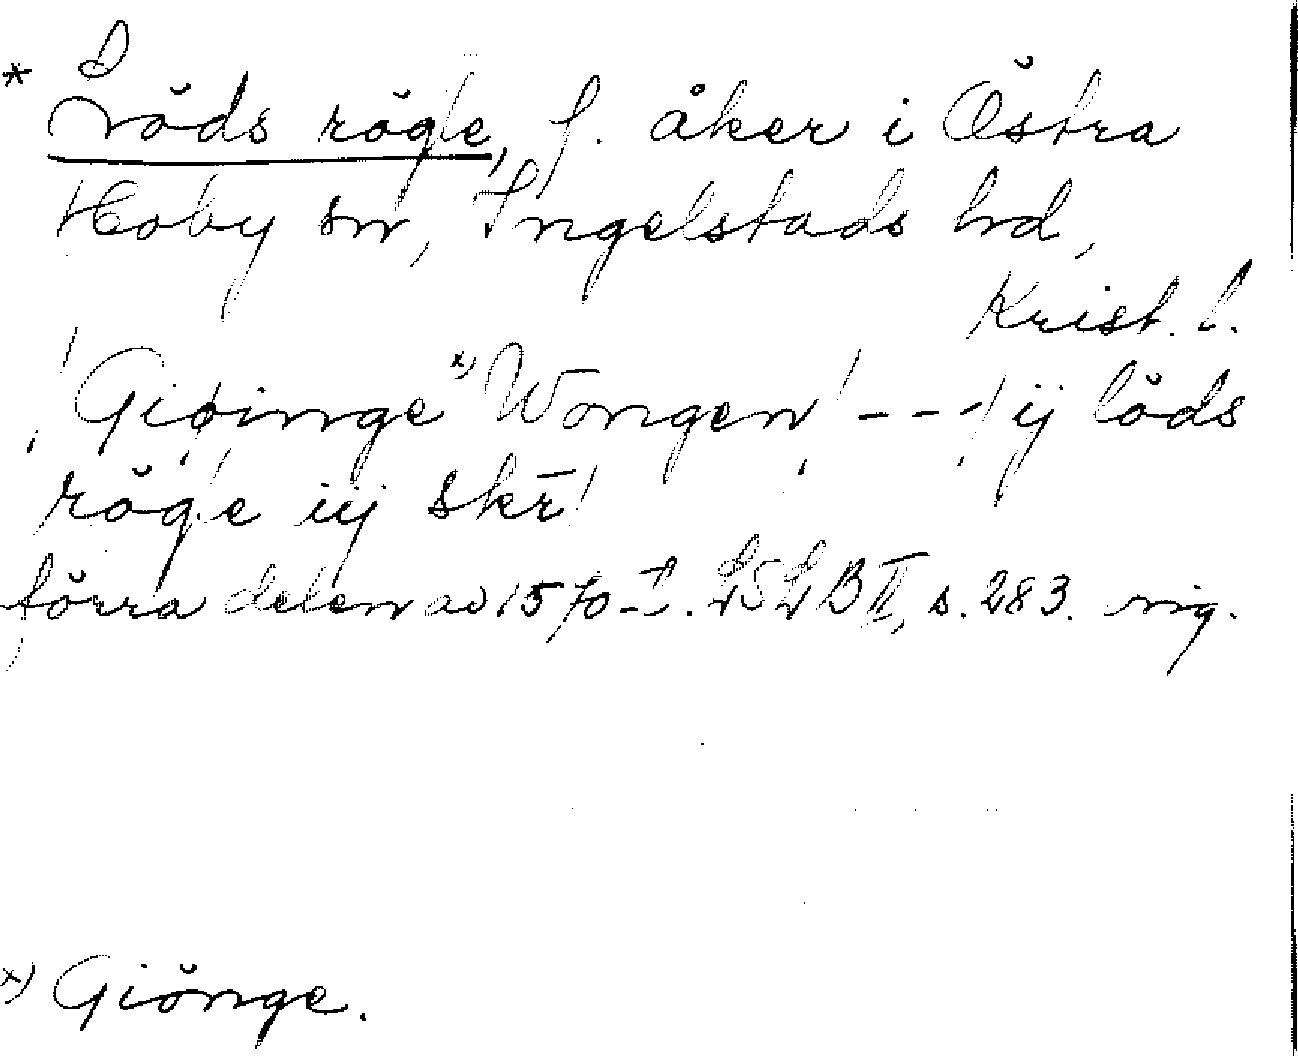 * Löds röge, f. åker i Östra
Hoby sn, Ingelstads hd,
Krist. l.
"Giøinge x) Wongen" - - - "ij löds
röge iij skr̄"
förra delen av 1570-t. LSLB II, s. 283. orig.
x) Giönge.